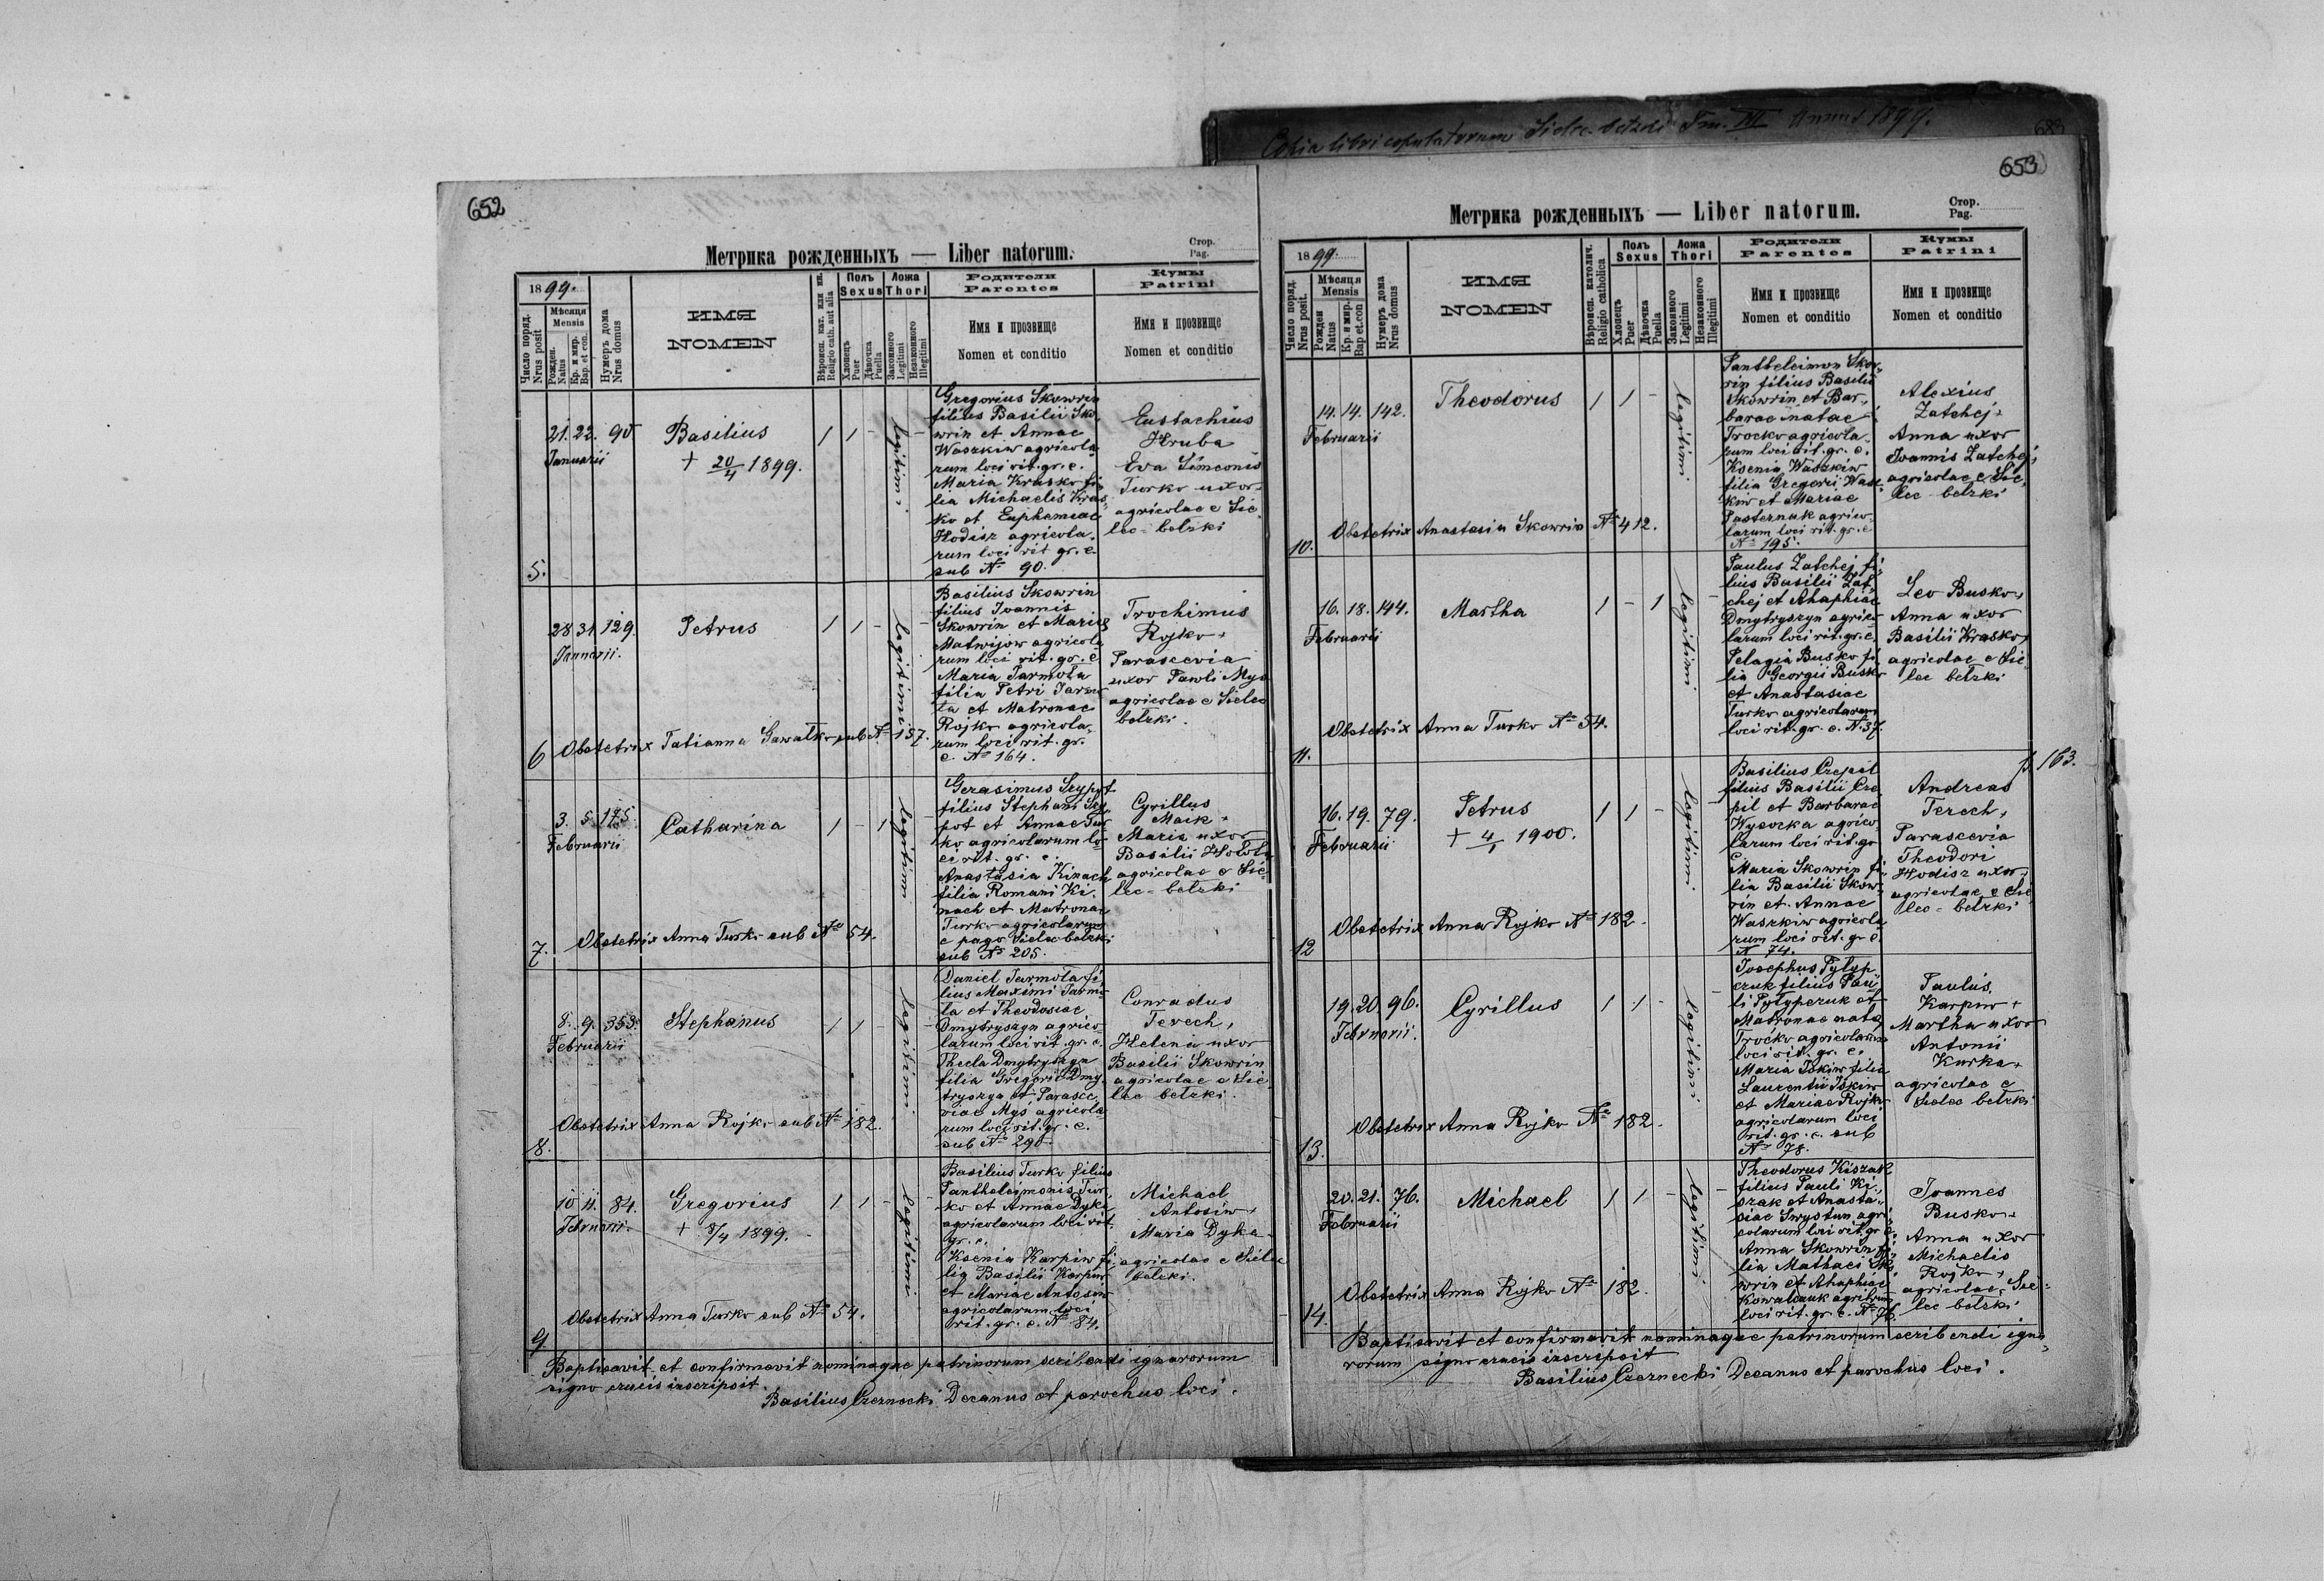 Copia libri copulatorum Sielec belzki Tm. III Annus 1899.
652
Метрика рожденныхъ — Liber natorum.
Стор.
Pag.
1899.
Число поряд.
Nrus posit
Мѣсяця
Mensis
Рожден.
Natus
Кр. и мир.
Bap. et con.
Нумеръ дома
Nrus domus
ИМЯ
NOMEN
Вѣроисп. кат. или ин.
Religio cath. aut alia
Полъ
Sexus
Хлопець
Puer
Дѣвочка
Puella
Ложа
Thori
Законного
Legitimi
Незаконного
Illegitimi
Родители
Parentes
Имя и прозвище
Nomen et conditio
Кумы
Patrini
Имя и прозвище
Nomen et conditio
5.
21. 22. 90
Januarii
Basilius
+ 20/4 1899.
1 1 -
legitimi
Gregorius Skowrin
filius Basilii Sko
wrin et Annae
Waszkiw agricola
rum loci rit. gr. c.
Maria Krasko fi
lia Michaelis Kras
ko et Euphemiae
Hodisz agricola
rum loci rit gr. c.
sub No 90.
Eustachius
Hruba
Eva Simeonis
Turko uxor
agricolae e Sie
lec-belzki
6
28 31 129.
Januarii.
Petrus
1 1 -
legitimi
Basilius Skowrin
filius Joannis
Skowrin et Maria
Matwijow agricola
rum loci rit. gr. c
Maria Jarmola
filia Petri Jarmo
la et Matronae
Rojko agricola
rum loci rit. gr.
c. No 164.
Trochimus
Rojko +
Parascevia
uxor Pawli Mys
agricolae e Sielec
belzki.
Obstetrix Tatianna Gawalko sub No 157.
7.
3. 5. 175.
Februarii
Catharina
1 - 1
legitimi
Gerasimus Szypot
filius Stephani Szy
pot et Annae Tur
ko agricolarum lo
ci rit. gr. c.
Anastasia Kinach
filia Romani Ki
nach et Matronae
Turko agricolarum
e pago Sielec belzki
sub No 205.
Cyrillus
Maik +
Maria uxor
Basilii
agricolae e Sie
lec-belzki
Obstetrix Anna Turko sub No 54.
8.
8. 9. 353.
Februarii
Stephanus
1 1 -
legitimi
Daniel Jarmola fi
lius Maximi Jarmo
la et Theodosiae
Dmytryszyn agrico
larum loci rit. gr. c.
Thecla Dmytryszyn
filia Gregorii Dmy
tryszyn et Parasce
viae Mys agricola
rum loci rit. gr. c.
sub No 290
Conradus
Terech,
Helena uxor
Basilii Skowrin
agricolae e Sie
lec belzki.
Obstetrix Anna Rojko sub No 182.
9
10 11. 84.
Februarii.
Gregorius
+ 8/4 1899.
1 1 -
legitimi
Basilius Turko filius
Pantheleimonis Tur
ko et Annae Dyka
agricolarum loci rit.
gr. c.
Ksenia Karpiw fi
lia Basilii Karpiw
et Mariae Antosiw
agricolarum loci
rit. gr. c. No 84.
Michael
Antosiw +
Maria Dyka
agricolae e Sielec
belzki.
Obstetrix Anna Turko sub No 54.
Baptisavit et confirmavit nominaque patrinorum scribendi ignarorum
signo crucis inscripsit.
Basilius Czernecki Decanus et parochus loci.
653
Метрика рожденныхъ — Liber natorum.
Стор.
Pag.
1899.
Число поряд.
Nrus posit.
Мѣсяця
Mensis
Рожден
Natus
Кр. и мир.
Bap et con
Нумеръ дома
Nrus domus
ИМЯ
NOMEN
Вѣроисп. католич.
Religio catholica
Полъ
Sexus
Хлопець
Puer
Дѣвочка
Puella
Ложа
Thori
Законного
Legitimi
Незаконного
Illegitimi
Родители
Parentes
Имя и прозвище
Nomen et conditio
Кумы
Patrini
Имя и прозвище
Nomen et conditio
10.
14. 14. 142.
Februarii
Theodorus
1 1 -
legitimi
Pantheleimon Skow
rin filius Basilii
Skowrin et Bar
barae natae
Trocko agricola
rum loci rit. gr. c.
Ksenia Waszkiw
filia Gregorii Wasz
kiw et Mariae
Pasternak agrico
larum loci rit. gr. c
No 195.
Alexius
Zatchej +
Anna uxor
Joannis Zatchej
agricolae e Sie
lec belzki
Obstetrix Anastasia Skowrin No 412.
11.
16. 18. 144.
Februarii
Martha
1 - 1
legitimi
Paulus Zatchej fi
lius Basilii Zat
chej et Ahaphiae
Dmytryszyn agrico
larum loci rit. gr. c.
Pelagia Busko fi
lia Georgii Busko
et Anastasiae
Turko agricolarum
loci rit. gr. c. No 37.
Leo Busko +
Anna uxor
Basilii Krasko
agricolae e Sie
lec belzki
Obstetrix Anna Turko No 54.
163.
12
16. 19. 79.
Februarii
Petrus
+ 4/1 1900.
1 1 -
legitimi
Basilius Czepil
filius Basilii Cze
pil et Barbarae
Wysocka agrico
larum loci rit. gr
c
Maria Skowrin fi
lia Basilii Skow
rin et Annae
Waszkiw agricola
rum loci rit. gr c.
N 74.
Andreas
Terech,
Parascevia
Theodori
Hodisz uxor
agricolae e Sie
lec-belzki
Obstetrix Anna Rojko No 182.
13.
19. 20. 96.
Februarii.
Cyrillus
1 1 -
legitimi
Josephus Pylyp
czuk filius Pau
li Pylypczuk et
Matronae nata
Trocko agricolarum
loci rit. gr. c.
Maria Iskiw filia
Laurentii Iskiw
et Mariae Rojko
agricolarum loci
rit. gr. c. sub
No 78.
Paulus
Karpiw +
Martha uxor
Antonii
Kurka +
agricolae e
Sielec belzki
Obstetrix Anna Rojko No 182.
14.
20. 21. 76.
Februarii
Michael
1 1 -
legitimi
Theodorus Kiszak
filius Pauli Ki
szak et Anasta
siae Swystun agri
colarum loci rit. gr c.
Anna Skowrin fi
lia Mathaei Sko
wrin et Ahaphiae
Kowalczuk agrilrum
loci rit. gr. c. No 76.
Joannes
Busko +
Anna uxor
Michaelis
Rojko +
agricolae, Sie
lec belzki
Obstetrix Anna Rojko No 182.
Baptisavit et confirmavit nominaque patrinorum scribendi igna
rorum signo crucis inscripsit
Basilius Czernecki Decanus et parochus loci.